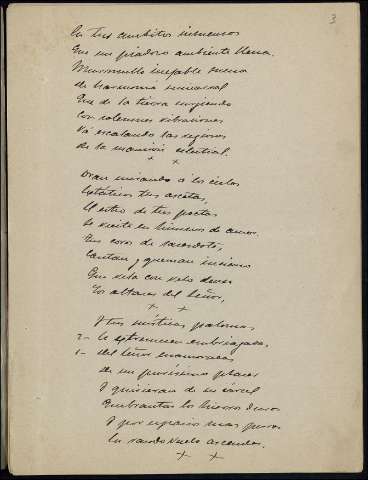 3
En tus ámbitos inmensos
Que un piadoso ambiente llena.
Murmurullo inefable suena
de harmonía universal
Que de la tierra surgiendo
con solemnes vibraciones
Va escalando las regiones
de la mansión celestial.
x x
Oran mirando á los cielos
Extáticos tus ascetas,
El estro de tus poetas
se vierte en himnos de amor.
Tus coros de sacerdotes,
Cantan y queman incienso
Que vela con velo denso
Los altares del Señor,
x x
Y tus místicas palomas
2 - Se extremecen embriagadas
1 - del Señor enamoradas
de un purísimo placer
Y quisieran de su cárcel
Quebrantar los hierros duros
Y por espacios mas puros
En raudo vuelo ascender.
x x